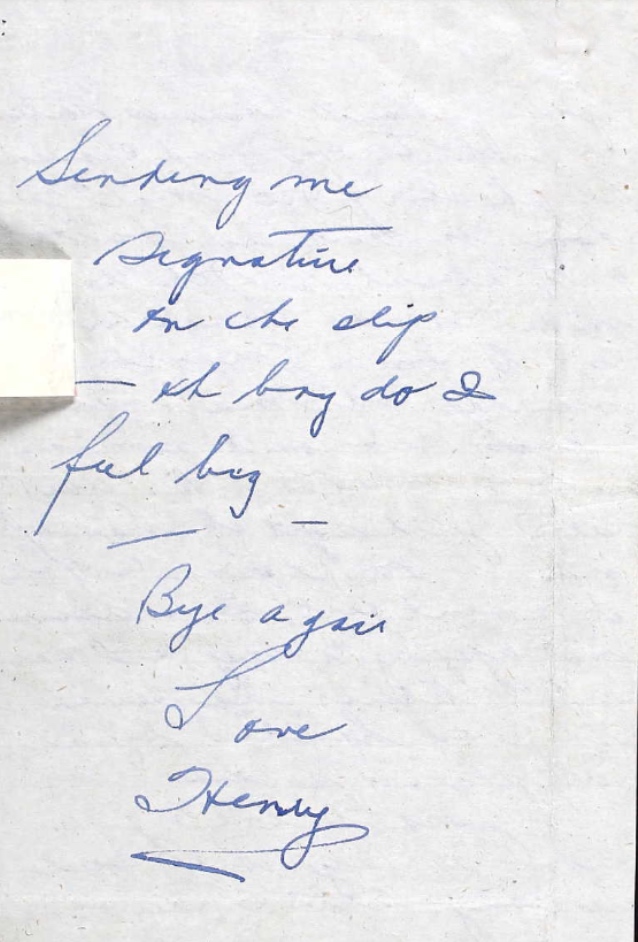 Sending me
signature
on the slip
— oh boy do I
feel big
— —
Bye again
Love
Henry